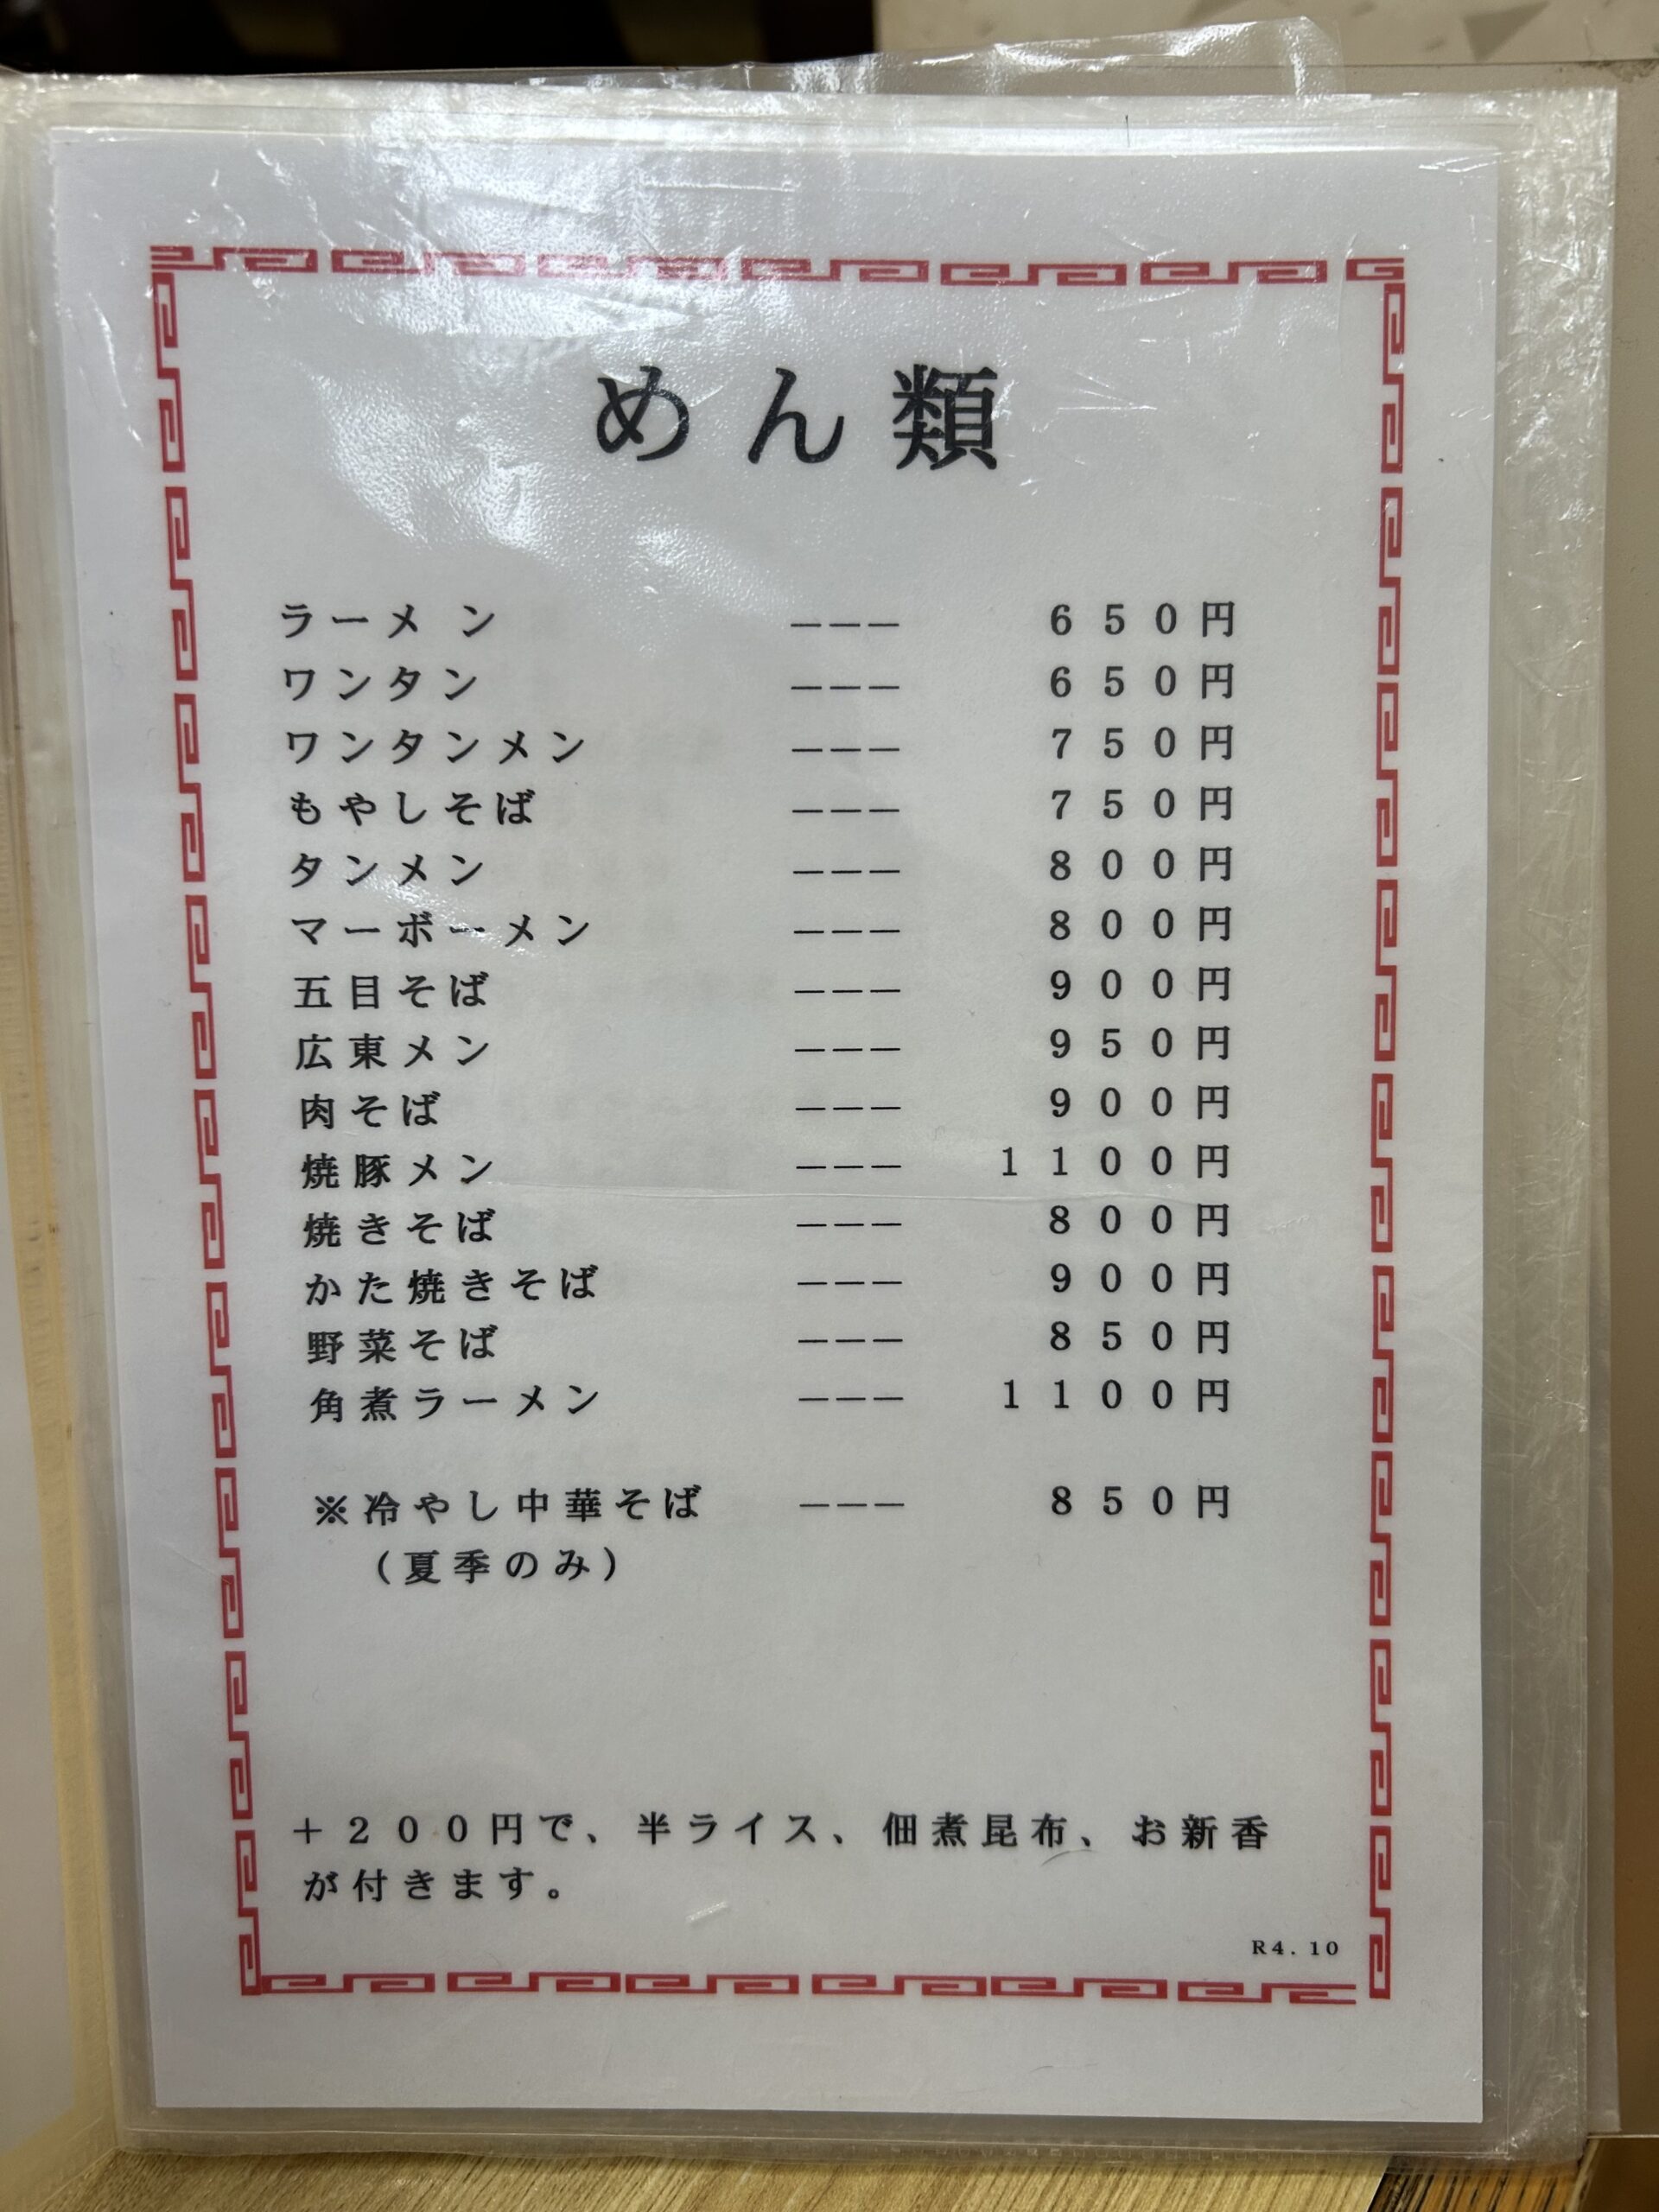 めん類
ラーメン ――― 650円
ワンタン ――― 650円
ワンタンメン ――― 750円
もやしそば ――― 750円
タンメン ――― 800円
マーボーメン ――― 800円
五目そば ――― 900円
広東メン ――― 950円
肉そば ――― 900円
焼豚メン ――― 1100円
焼きそば ――― 800円
かた焼きそば ――― 900円
野菜そば ――― 850円
角煮ラーメン ――― 1100円
※冷やし中華そば ――― 850円
(夏季のみ)
+200円で、半ライス、佃煮昆布、お新香
が付きます。
R4.10